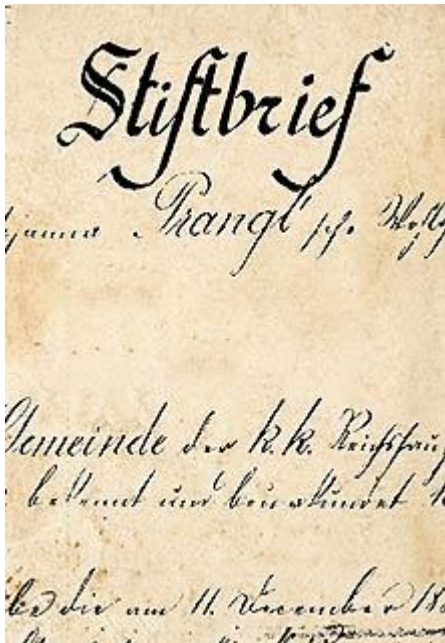 Stiftbrief
Prangl'sche
Gemeinde der k. k. Reichshaup
bekennt und beurkundet
die am 11. December 18